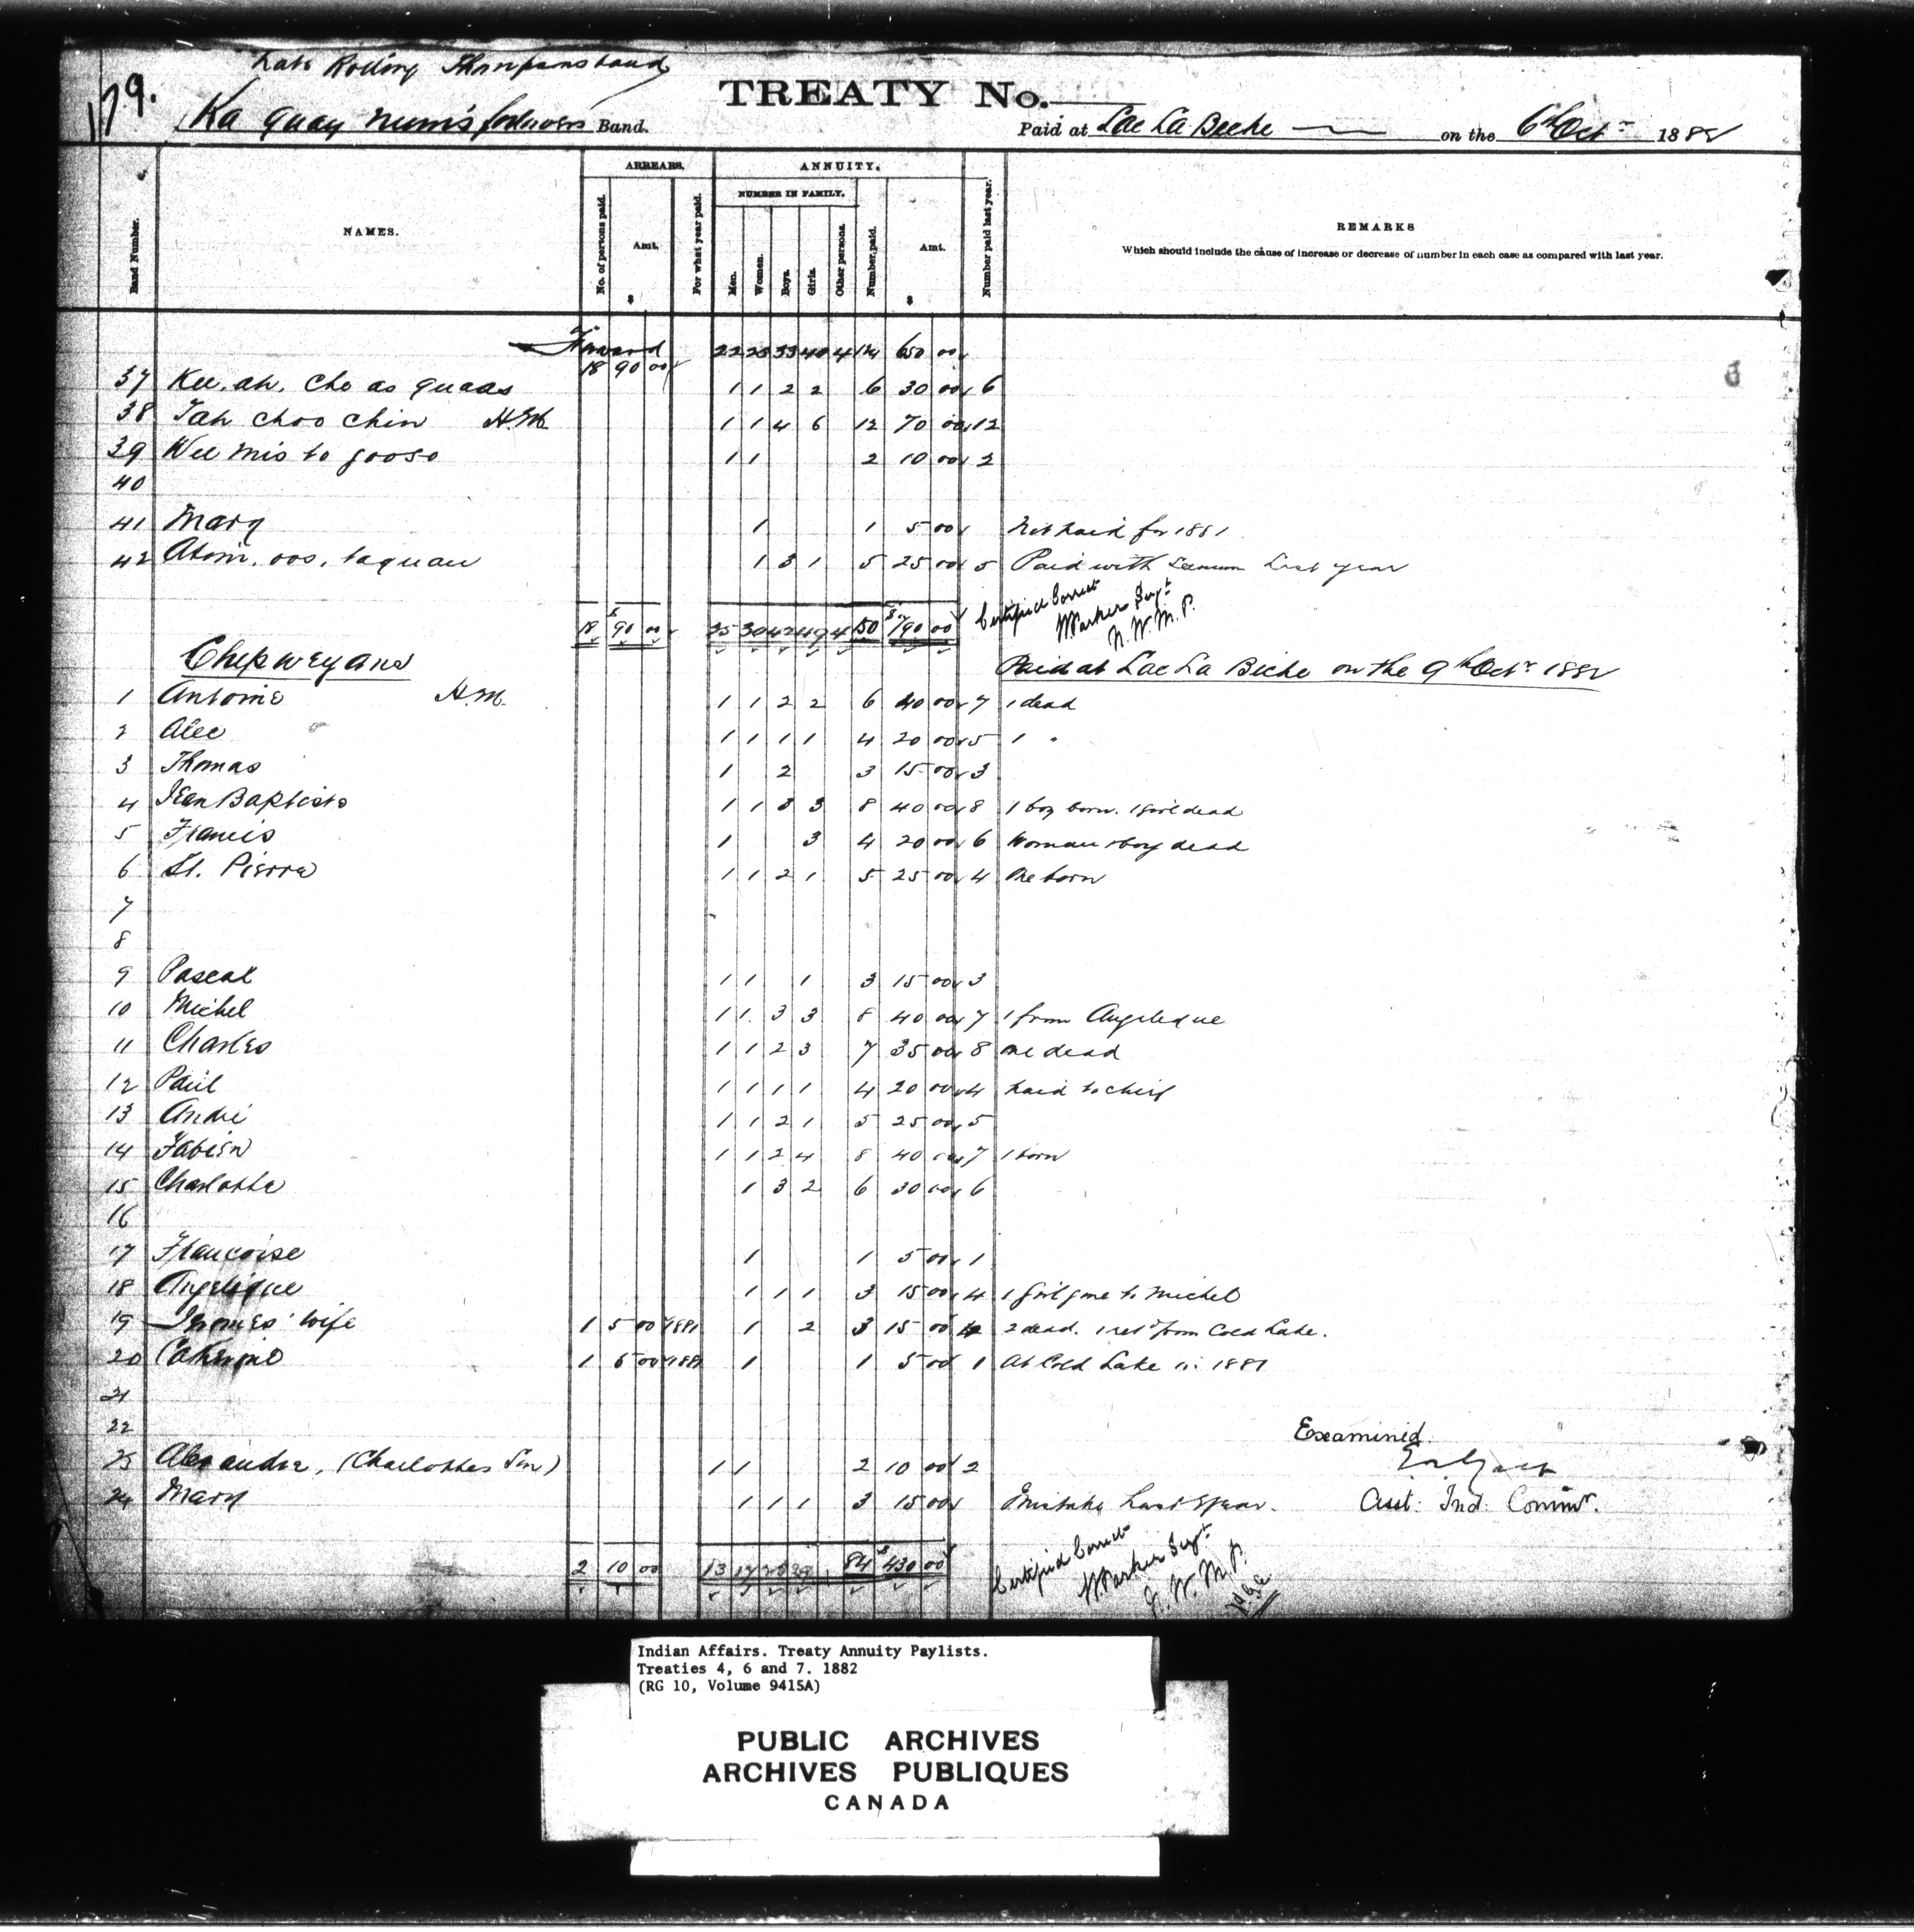 179.
Late Rolling Thompsons band
TREATY No.
Ka quay num's followers Band.
Paid at Lac La Biche on the 6th Octr 1882
Band Number.
NAMES.
ARREARS.
No. of persons paid.
Amt.
$
For what year paid.
ANNUITY.
NUMBER IN FAMILY.
Men.
Women.
Boys.
Girls.
Other persons.
Number paid.
Amt.
$
Number paid last year.
REMARKS
Which should include the cause of increase or decrease of number in each case as compared with last year.
Forward 18 90 00 22 25 33 40 4 124 650 00
37 Kee. ah. cho as quaas 1 1 2 2 6 30 00 6
38 Tah choo chin H.M. 1 1 4 6 12 70 00 12
39 Wee mis to gooso 1 1 2 10 00 2
40
41 Mary 1 1 5 00 Not paid for 1881
42 Atom. oos. taquau 1 3 1 5 25 00 5 Paid with Last year
18 $ 90 00 25 30 42 49 4 150 $ 790 00
Certified Correct
W Parker Sergt
N. W. M. P.
Chepweyans
Paid at Lac La Biche on the 9th Octr 1882
1 Antoine H.M. 1 1 2 2 6 40 00 7 1 dead
2 Alec 1 1 1 1 4 20 00 5 1 "
3 Thomas 1 2 3 15 00 3
4 Jean Baptiste 1 1 3 3 8 40 00 8 1 boy born. 1 girl dead
5 Francis 1 3 4 20 00 6 Woman & boy dead
6 St. Pierre 1 1 2 1 5 25 00 4 One born
7
8
9 Pascal 1 1 1 3 15 00 3
10 Michel 1 1 3 3 8 40 00 7 1 from Angelique
11 Charles 1 1 2 3 7 35 00 8 One dead
12 Paul 1 1 1 1 4 20 00 4 paid to chief
13 André 1 1 2 1 5 25 00 5
14 Fabien 1 1 2 4 8 40 00 7 1 born
15 Charlotte 1 3 2 6 30 00 6
16
17 Francoise 1 1 5 00 1
18 Angelique 1 1 1 3 15 00 4 1 girl gone to Michel
19 Thomas' wife 1 5 00 1881 1 2 3 15 00 4 2 dead. 1 retd from Cold Lake.
20 Catherine 1 5 00 1881 1 1 5 00 1 At Cold Lake in 1881
21
22
23 Alexandre, (Charlottes Son) 1 1 2 10 00 2
24 Mary 1 1 1 3 15 00 Mistake Last year.
Examined
Asst. Ind. Commr.
2 10 00 13 17 84 $ 430 00
Certified Correct
W Parker Sergt
N. W. M. P.
Indian Affairs. Treaty Annuity Paylists.
Treaties 4, 6 and 7. 1882
(RG 10, Volume 9415A)
PUBLIC ARCHIVES
ARCHIVES PUBLIQUES
CANADA